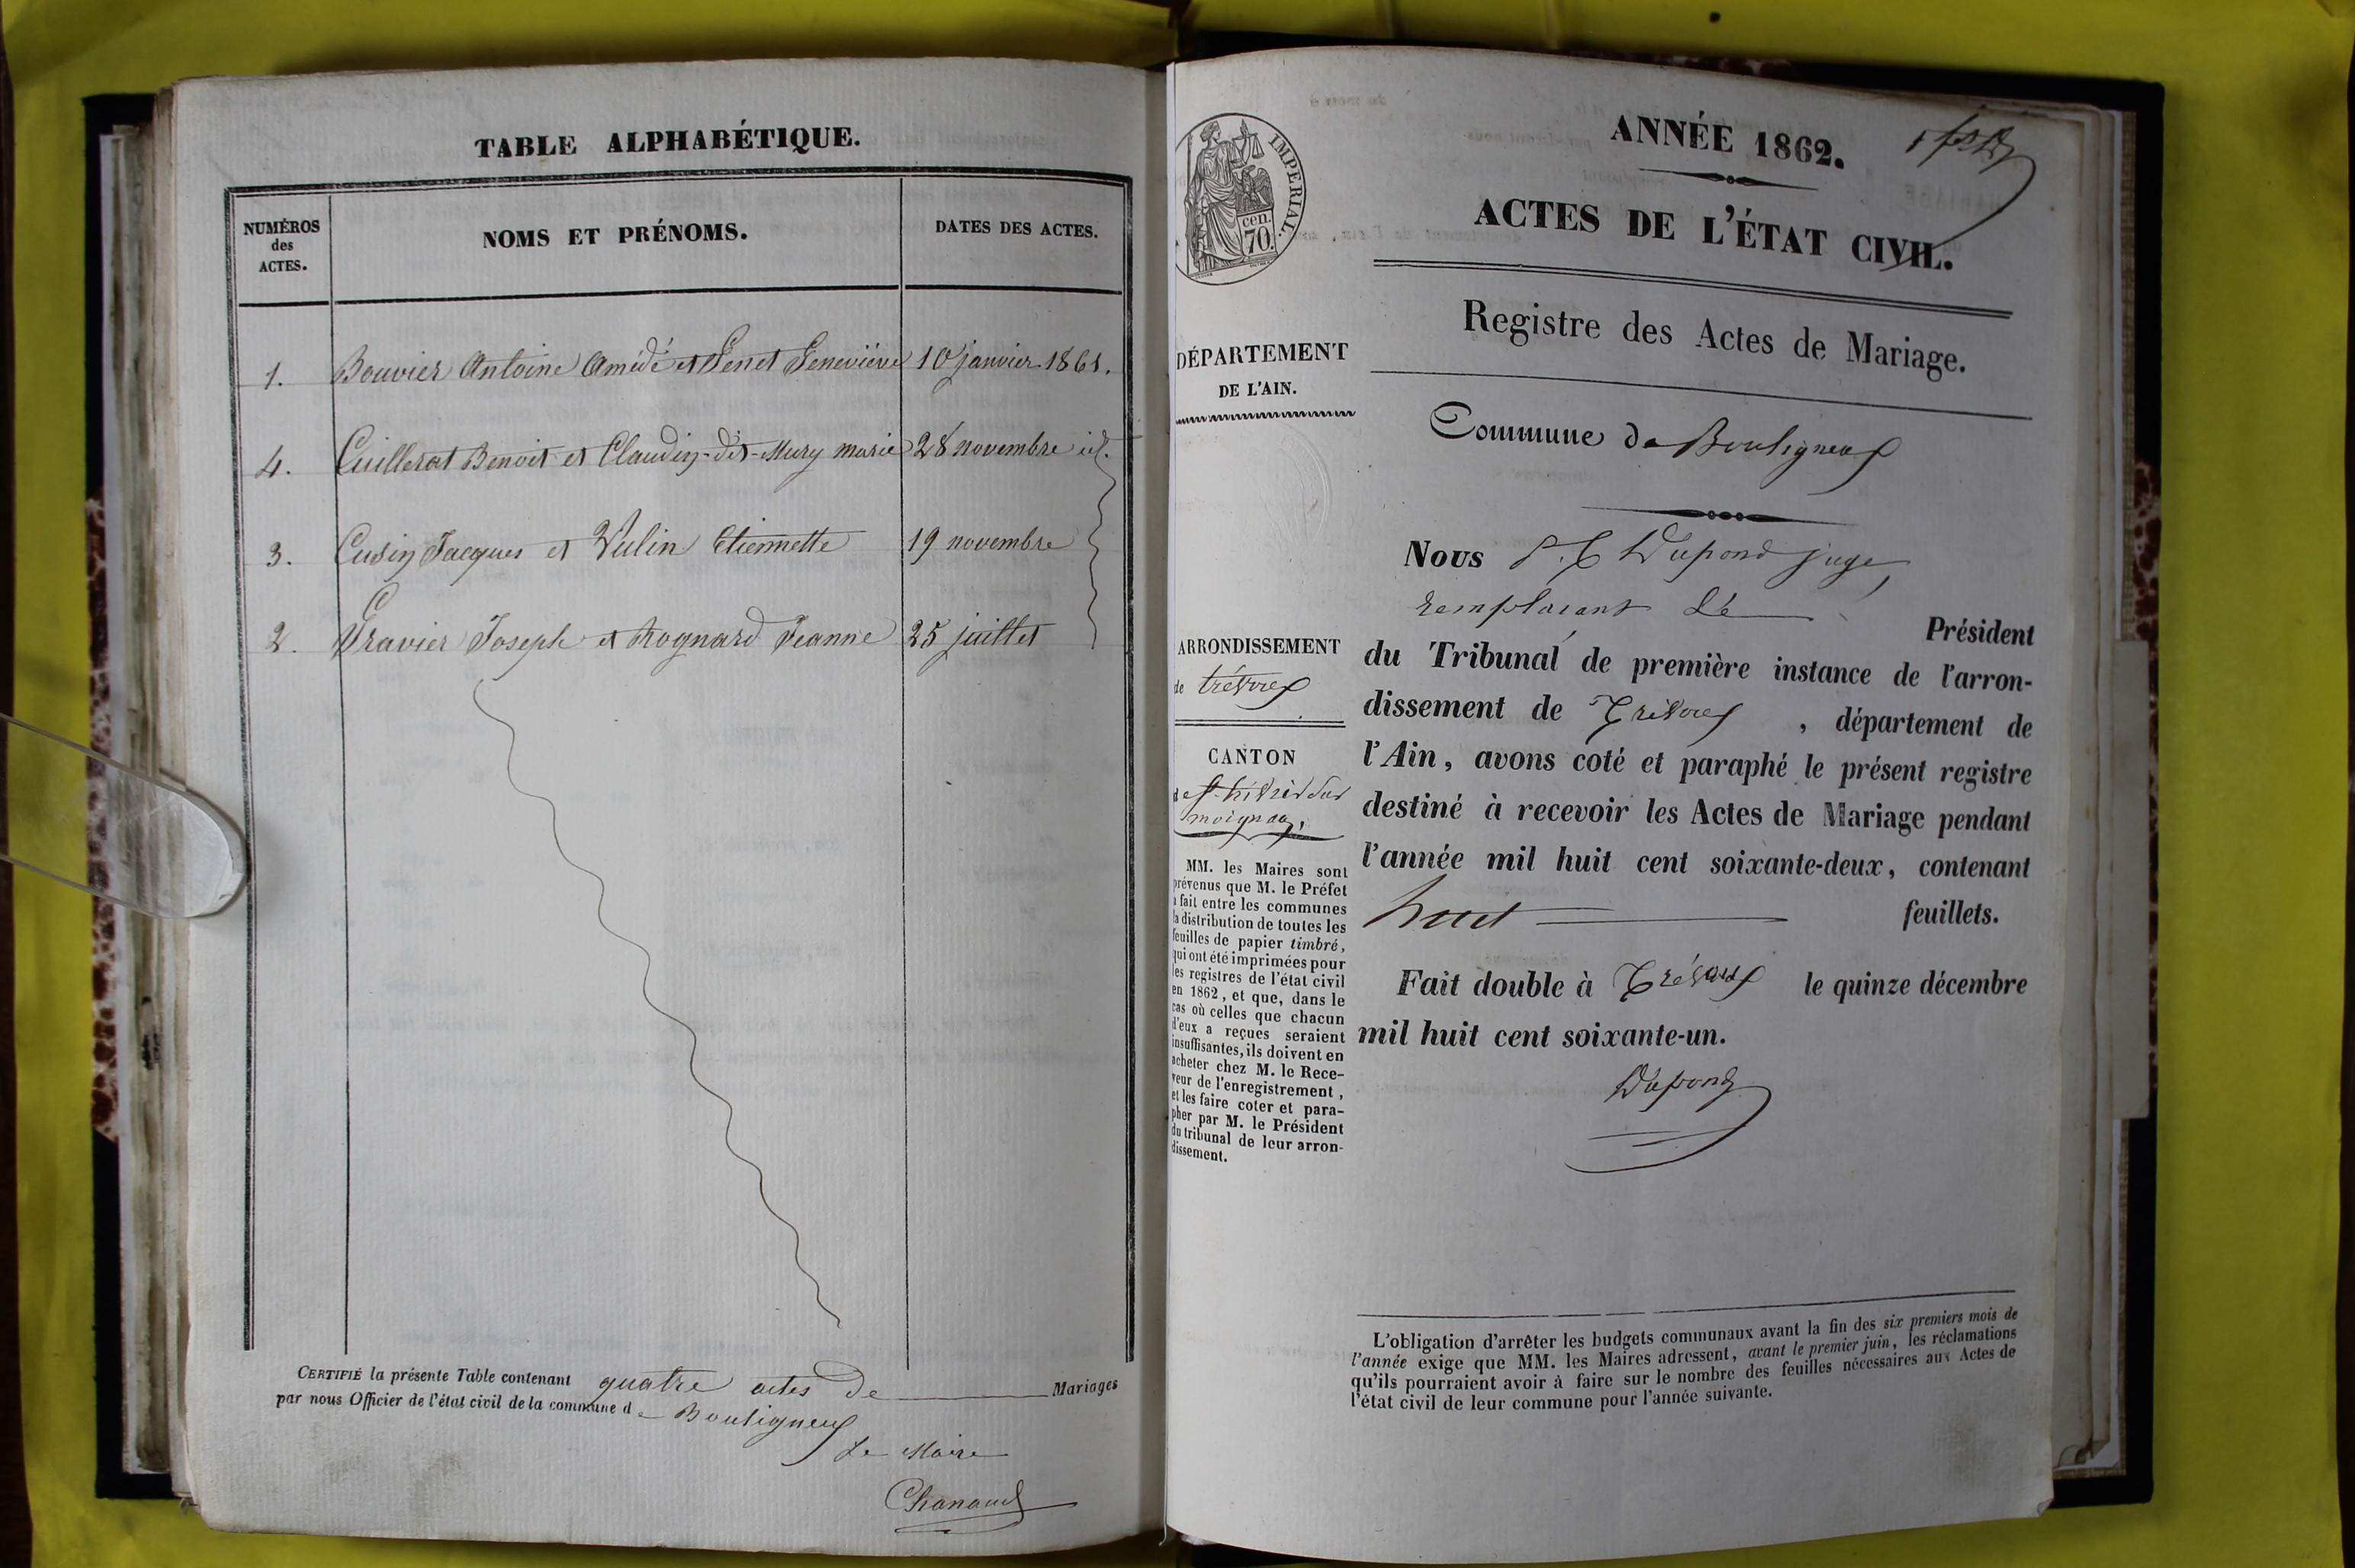 TABLE ALPHABÉTIQUE.
NUMÉROS
des
ACTES.
NOMS ET PRÉNOMS.
DATES DES ACTES.
1. Bouvier Antoine Amédé et Genet Geneviève 10 janvier 1861.
4. Cuillerat Benoit et Claudin-dit-Mury marie 28 novembre id.
3. Cusin Jacques et Vulin Etiennette 19 novembre
2. Gravier Joseph et Rognard Jeanne 25 juillet
CERTIFIÉ la présente Table contenant quatre actes de Mariages
par nous Officier de l'état civil de la commune de Bouligneux
Le Maire
Chanaud
IMPERIAL.
cen.
70.
ANNÉE 1862.
ACTES DE L'ÉTAT CIVIL.
Registre des Actes de Mariage.
DÉPARTEMENT
DE L'AIN.
Commune de Bouligneux
Nous Dupond juge,
remplacant le Président
du Tribunal de première instance de l'arron-
dissement de Trévoux, département de
l'Ain, avons coté et paraphé le présent registre
destiné à recevoir les Actes de Mariage pendant
l'année mil huit cent soixante-deux, contenant
huit feuillets.
Fait double à Trévoux le quinze décembre
mil huit cent soixante-un.
Dupond
ARRONDISSEMENT
de trévoux
CANTON
de
MM. les Maires sont
prévenus que M. le Préfet
a fait entre les communes
la distribution de toutes les
feuilles de papier timbré,
qui ont été imprimées pour
les registres de l'état civil
en 1862, et que, dans le
cas où celles que chacun
d'eux a reçues seraient
insuffisantes, ils doivent en
acheter chez M. le Rece-
veur de l'enregistrement,
et les faire coter et para-
pher par M. le Président
du tribunal de leur arron-
dissement.
L'obligation d'arrêter les budgets communaux avant la fin des six premiers mois de
l'année exige que MM. les Maires adressent, avant le premier juin, les réclamations
qu'ils pourraient avoir à faire sur le nombre des feuilles nécessaires aux Actes de
l'état civil de leur commune pour l'année suivante.